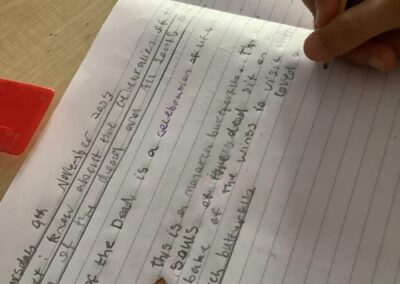 rsday 9th November 2023
: I know about the celebration of
of the dead and All Souls
of the Dead is a celebration of life
this is a monarch butterfly. the
souls of the dead sit on
bake of the wings to visit
loved
ch butterfly